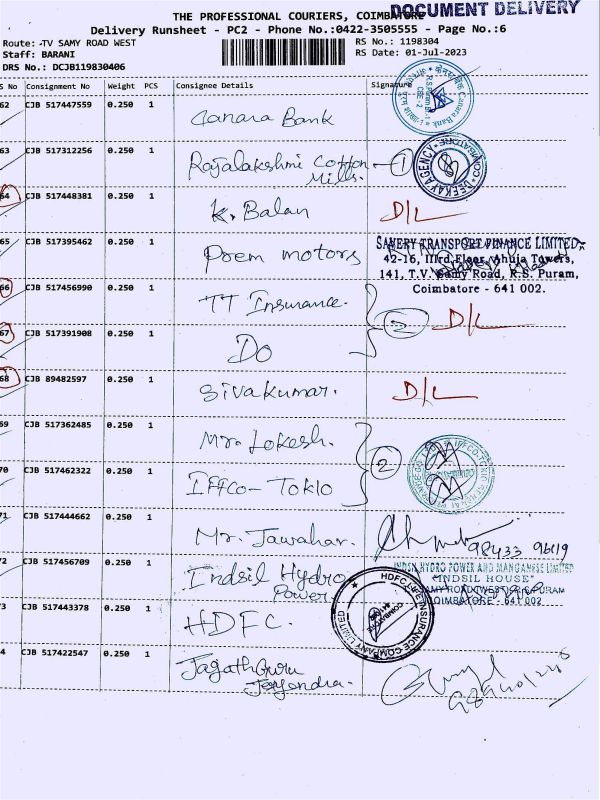 DOCUMENT DELIVERY
THE PROFESSIONAL COURIERS, COIMBATORE
Delivery Runsheet - PC2 - Phone No.:0422-3505555 - Page No.:6
Route: -TV SAMY ROAD WEST
RS No.: 1198304
Staff: BARANI
RS Date: 01-Jul-2023
DRS No.: DCJB119830406
S No Consignment No Weight PCS Consignee Details Signature
62 CJB 517447559 0.250 1 Canara Bank
Canara Bank
63 CJB 517312256 0.250 1 Rajalakshmi Cotton Mills. 1
DEEKAY AGENCY COIMBATORE
64 CJB 517448381 0.250 1 K. Balan D/L
65 CJB 517395462 0.250 1 Prem motors
SAMERY TRANSPORT FINANCE LIMITED
42-16, IIIrd Floor, Ahuja Towers,
141, T.V. Samy Road, R.S. Puram,
Coimbatore - 641 002.
66 CJB 517456990 0.250 1 TT Insurance. 2 D/L
67 CJB 517391908 0.250 1 Do
68 CJB 89482597 0.250 1 Sivakumar. D/L
69 CJB 517362485 0.250 1 Mr. Lokesh. 2
70 CJB 517462322 0.250 1 Iffco-Tokio
71 CJB 517444662 0.250 1 Mr. Jawahar.
72 CJB 517456709 0.250 1 Indsil Hydro Power
INDSIL HYDRO POWER AND MANGANESE LIMITED
"INDSIL HOUSE"
COIMBATORE - 641 002
73 CJB 517443378 0.250 1 HDFC.
HDFC LIFE INSURANCE COMPANY LIMITED
COIMBATORE
74 CJB 517422547 0.250 1 Jagathguru Jayendra.